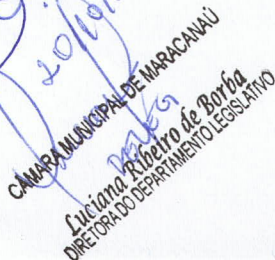 20/10/
CÂMARA MUNICIPAL DE MARACANAÚ
Luciana Ribeiro de Borba
DIRETORA DO DEPARTAMENTO LEGISLATIVO